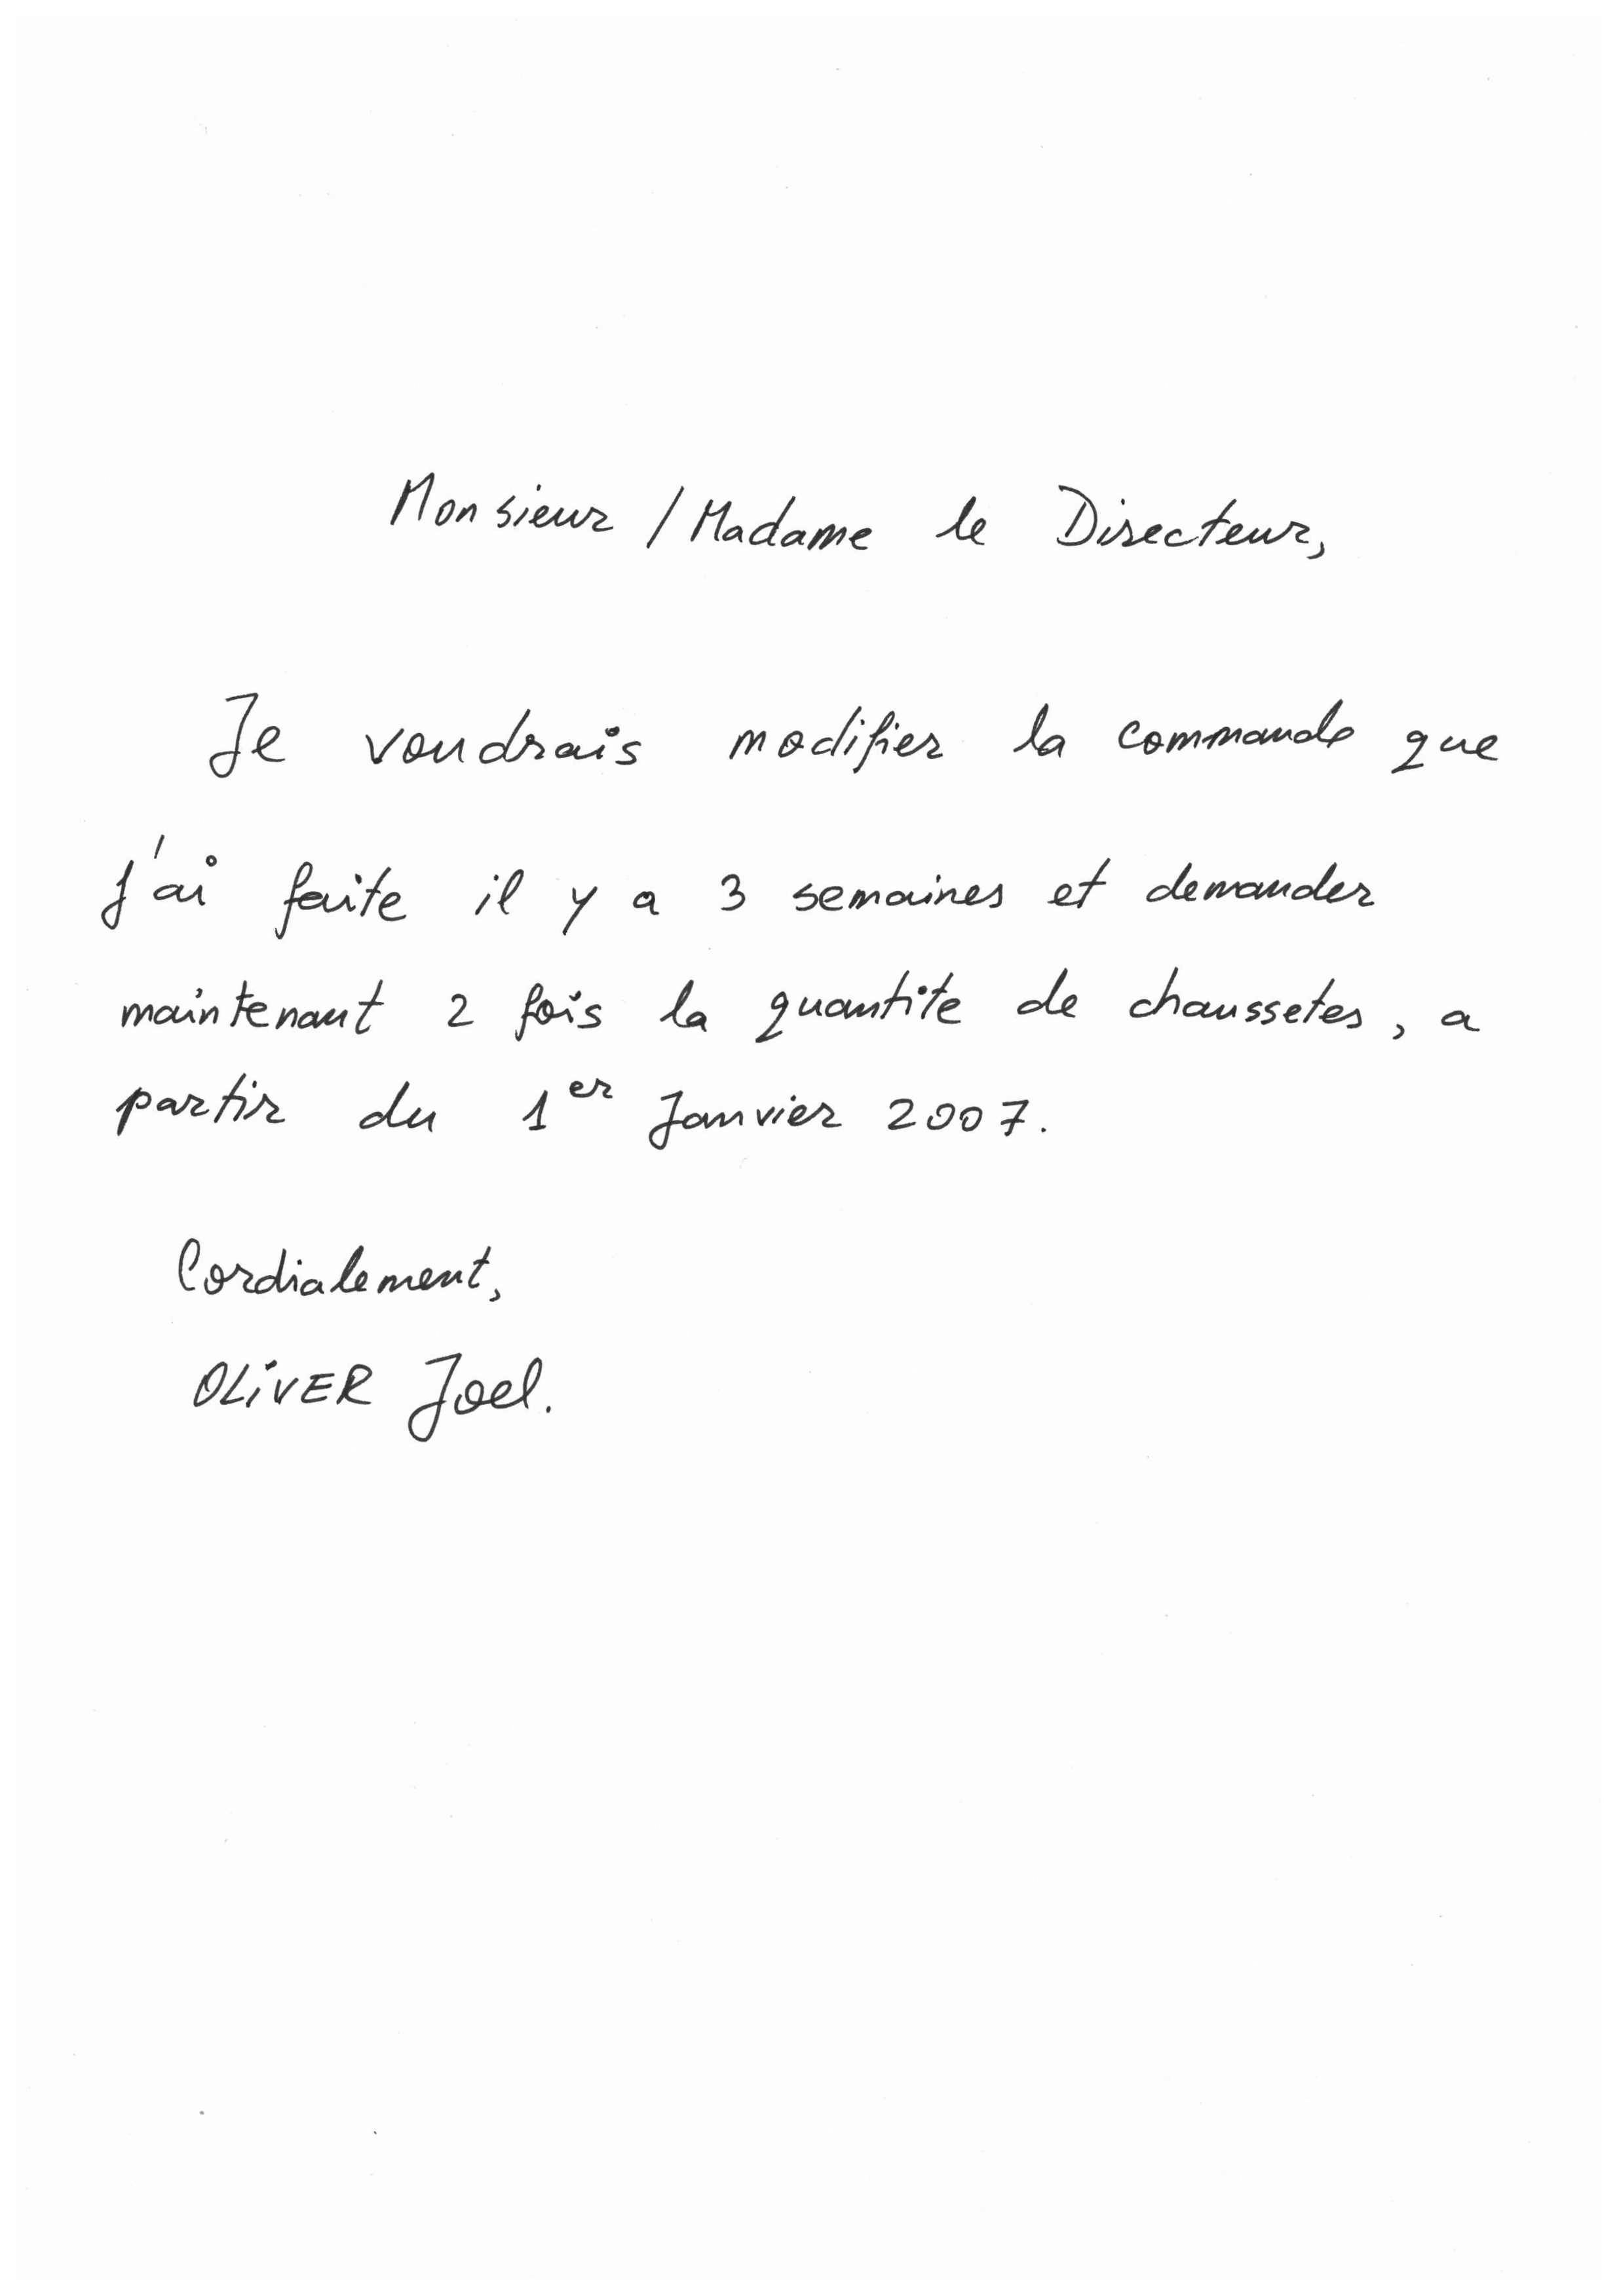 Monsieur / Madame le Directeur,
Je voudrais modifier la commande que
j'ai faite il y a 3 semaines et demander
maintenant 2 fois la quantite de chaussetes, a
partir du 1er Janvier 2007.
Cordialement,
OLiVER Joel.